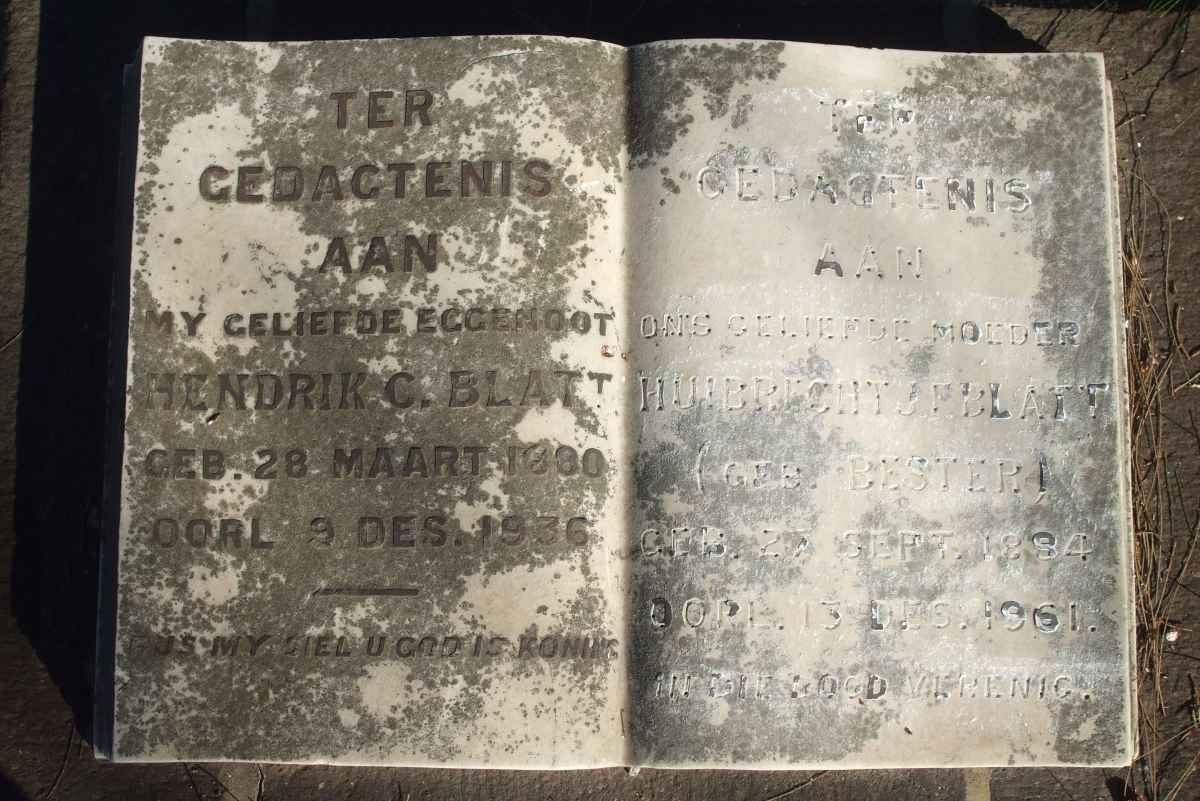 TER
GEDACTENIS
AAN
MY GELIEFDE EGGENOOT
HENDRIK C. BLATT
GEB. 28 MAART 1880
OORL 9 DES. 1936
RUS MY SIEL U GOD IS KONING
TER
GEDACTENIS
AAN
ONS GELIEFDE MOEDER
HUIBRECHT J.F. BLATT
(GEB BESTER)
GEB. 27 SEPT. 1884
OORL. 13 DES. 1961.
IN DIE DOOD VERENIG.